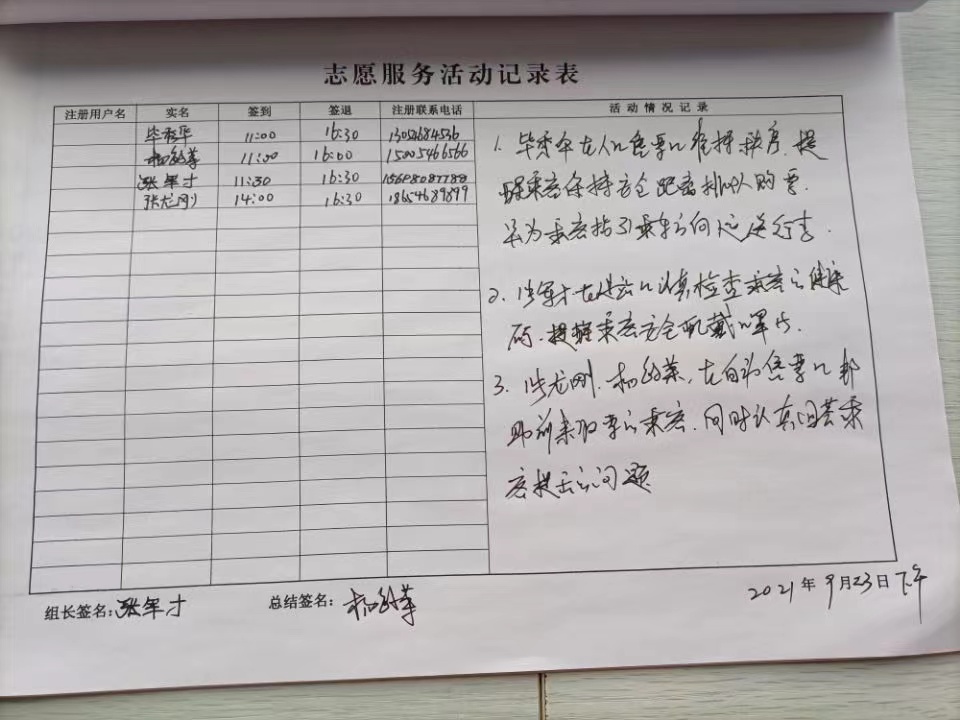 志愿服务活动记录表
注册用户名 实名 签到 签退 注册联系电话 活动情况记录
毕秀华 11:00 16:30
11:00 16:00 15005466566
张军才 11:30 16:30
张龙刚 14:00 16:30 18654689899
1. 毕秀华在人工售票口维持秩序、提
醒乘客保持安全距离排队购票
并为乘客指引乘车方向
2. 张军才在进站口认真检查乘客的健康
码、提醒乘客安全佩戴口罩
3. 张龙刚、在自动售票口帮
助前来取票的乘客、同时认真回答乘
客提出的问题
组长签名:张军才 总结签名:
2021年9月23日下午